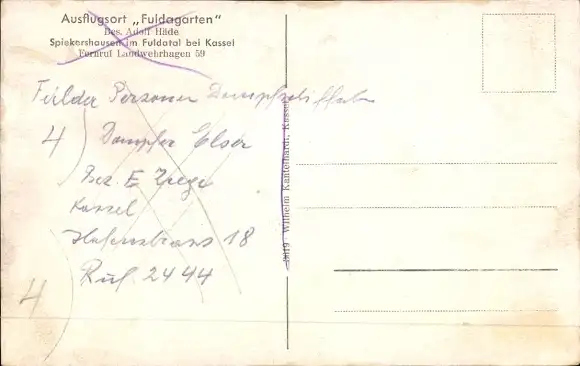 Ausflugsort „Fuldagarten"
Bes. Adolf Häde
Spiekershausen im Fuldatal bei Kassel
Fernruf Landwehrhagen 59
Personen Dampfschiffahrt
4 Dampfer Elsa
Bes. E
Kassel
18
Ruf. 2444
4
9019 Wilhelm Kantelhardt, Kassel